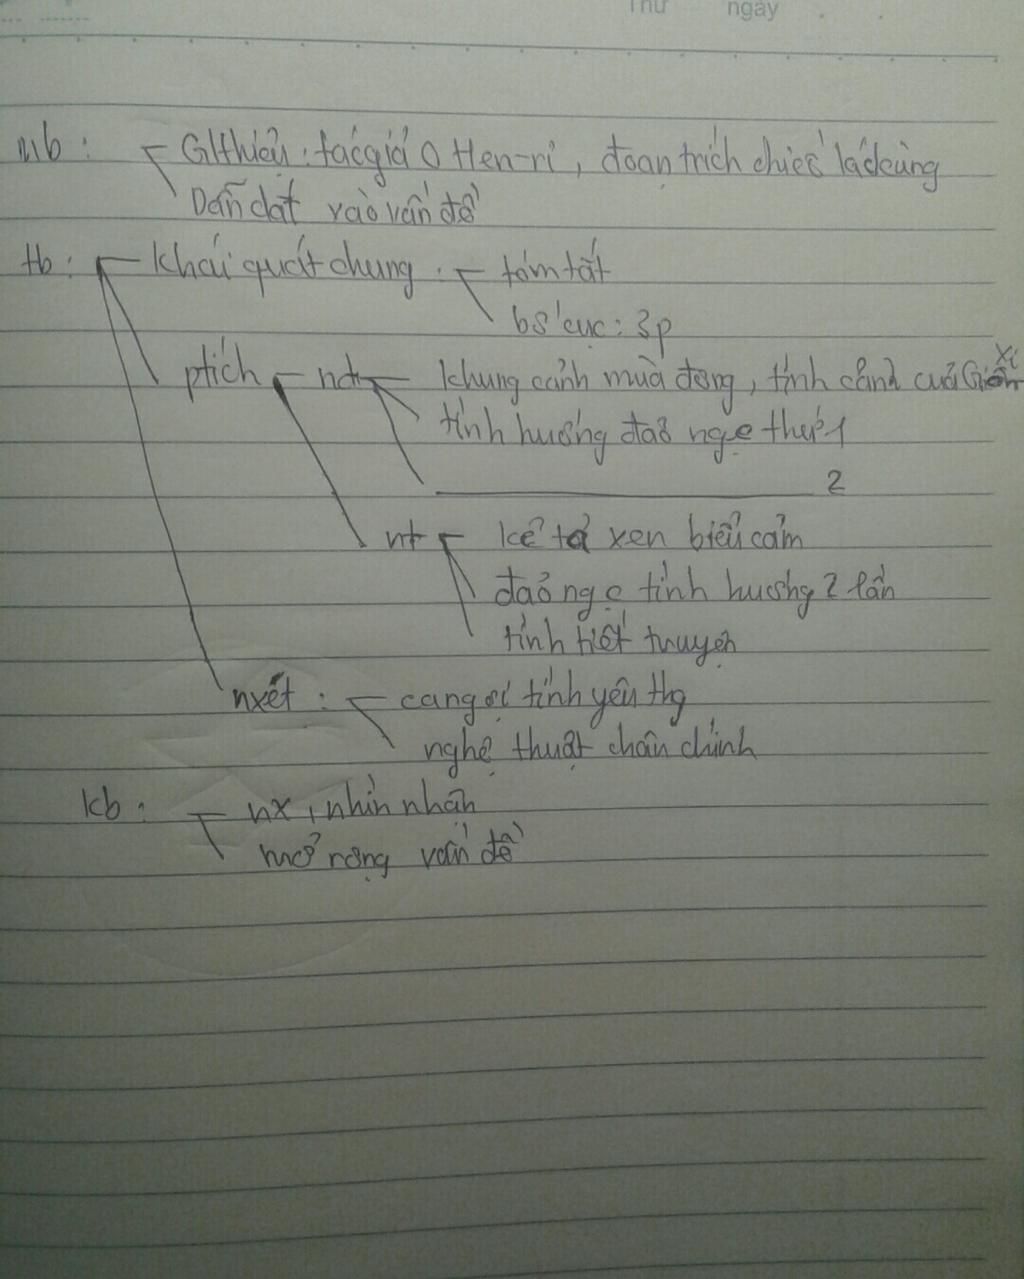 Thứ ngày
Mb : Gthiệu : tác giả O Hen-ri, đoạn trích chiếc lá cuối cùng
Dẫn dắt vào vấn đề
tb : Khái quát chung : tóm tắt
bố cục : 3p
ptích nd khung cảnh mùa đông, tình cảnh của Giôn xi
tình huống đảo ngc thứ 1
2
nt kể tả xen biểu cảm
đảo ngc tình huống 2 lần
tình tiết truyện
nxét : ca ngợi tình yêu thg
nghệ thuật chân chính
kb : nx, nhìn nhận
mở rộng vấn đề